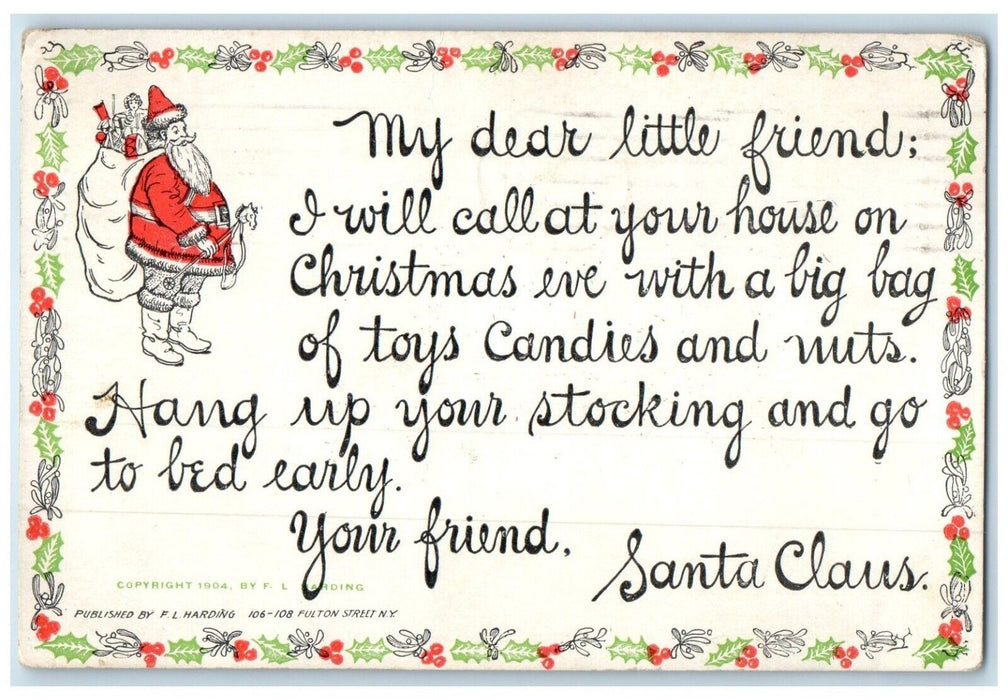 My dear little friend;
I will call at your house on
Christmas eve with a big bag
of toys Candies and nuts.
Hang up your stocking and go
to bed early.
Your friend,
Santa Claus.
COPYRIGHT 1904, BY F. L HARDING
PUBLISHED BY F. L. HARDING 106-108 FULTON STREET N.Y.